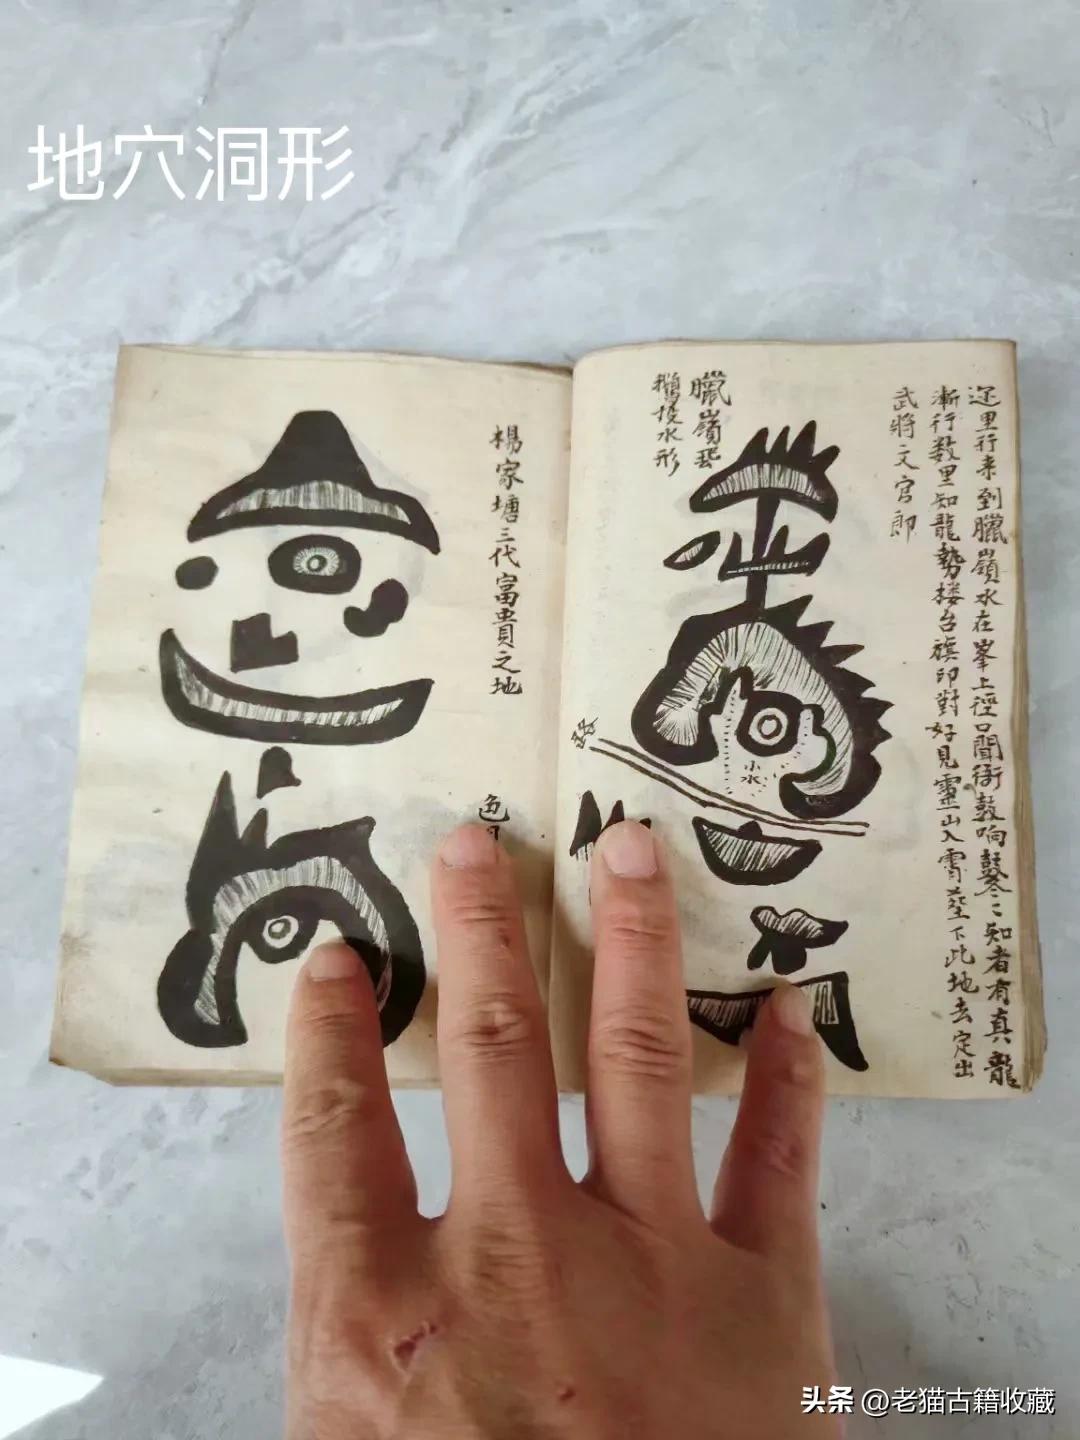 地穴洞形
迎里行来到臘嶺水在峯上徑口聞衙鼓响鼕〻知者有真龍
漸行数里知龍勢楼台旗印對好見靈山入霄莖下此地去定出
武將文官郎
臘嶺
鵝投水形
小水
楊家塘三代富貴之地
色
头条 @老猫古籍收藏